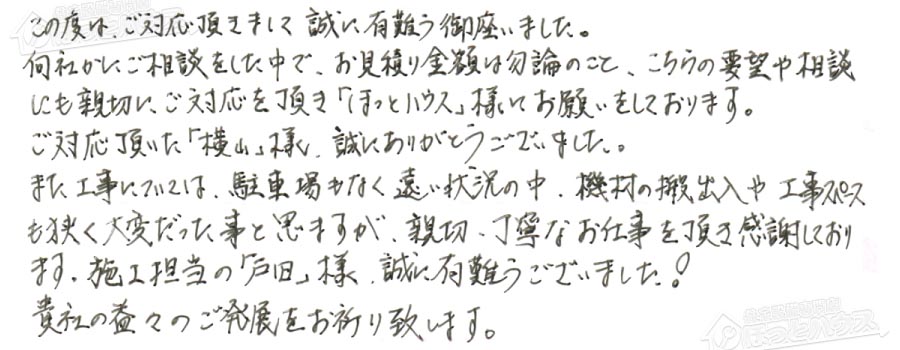 この度は、ご対応頂きまして 誠に有難う御座いました。
何社かにご相談をした中で、お見積り金額は勿論のこと、こちらの要望や相談
にも親切に、ご対応を頂き「ほっとハウス」様にてお願いをしております。
ご対応頂いた「横山」様、誠にありがとうございました。
また工事については、駐車場もなく遠い状況の中、機材の搬出入や工事スペース
も狭く大変だった事と思ますが、親切、丁寧なお仕事を頂き感謝しており
ます。施工担当の「戸田」様、誠に有難うございました!
貴社の益々のご発展をお祈り致します。
ほっとハウス